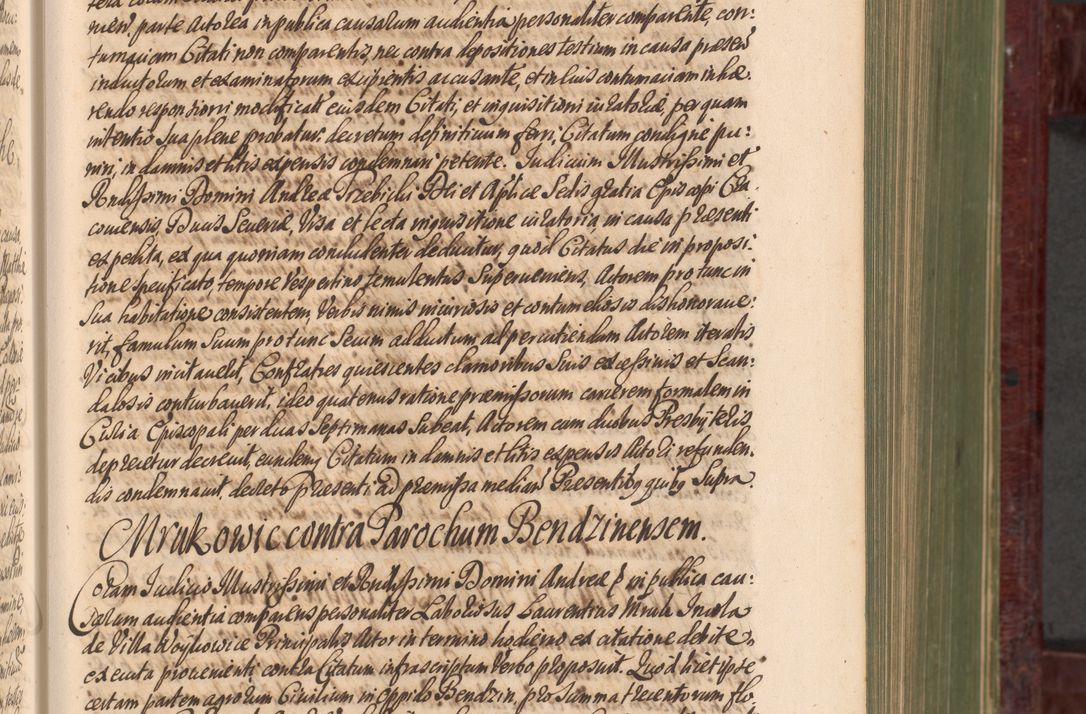 men, parte Actorea in publica causarum audientia personaliter comparente, con:
tumaciam Citati non comparentis, nec contra depositiones testium in causa præsen
inductorum et examinatorum excipientis accusante, et in eius contumaciam inhæ
rendo responsioni modificatæ eiusdem Citati, et inquisitioni curatoriæ, per quam
intentio sua plene probatur: decretum definitiuum ferri, Citatum condigne pu:
niri, in damnis et litis expensis condemnari petente. Iudicium Illustrissimi et
Rndissimi Domini Andreæ Trzebicki Dei et Aplicæ Sedis gratia Episcopi Cra:
couiensis, Ducis Seueriæ, Visa et lecta inquisitione curatoria, in causa præsenti
expedita, ex qua quoniam concludenter deducitur, quod Citatus die in proposi:
tione specificato, tempore Vespertino temulentus Superueniens, Actorem pro tunc in
Sua habitatione consistentem, Verbis nimis iniuriosis et contumeliosis dishonoraue:
rit, famulum Suum pro tunc Secum adductum ad percutiendum Actorem iteratis
Vicibus incitauerit, Confratres quiescentes clamoribus Suis excessiuis et Scan:
dalosis conturbauerit, ideo quatenus ratione præmissorum carcerem formalem in
Curia Episcopali per duas Septimanas Subeat, Actorem cum duobus Presbyteris
deprecetur decreuit, eundemq Citatum in damnis et litis expensis Actori refunden:
dis condemnauit, decreto præsenti ad præmissa median Præsentibq quibq Supra.
Mrukowic contra Parochum Bendzinensem.
Coram Iudicio Illustrissimi et Rndissimi Domini Andreæ in publica cau:
sarum audientia comparens personaliter Laboriosus Laurentius Mrula Incola
de Villa Woykowice Principalis Actor in termino hodierno ex citatione debite
executa proueniente contra Citatum infrascriptum Verbo proposuit. Quod licet ipse
certam partem agrorum Ciuilium in Oppido Bendzin, pro Summa trecentorum flo: